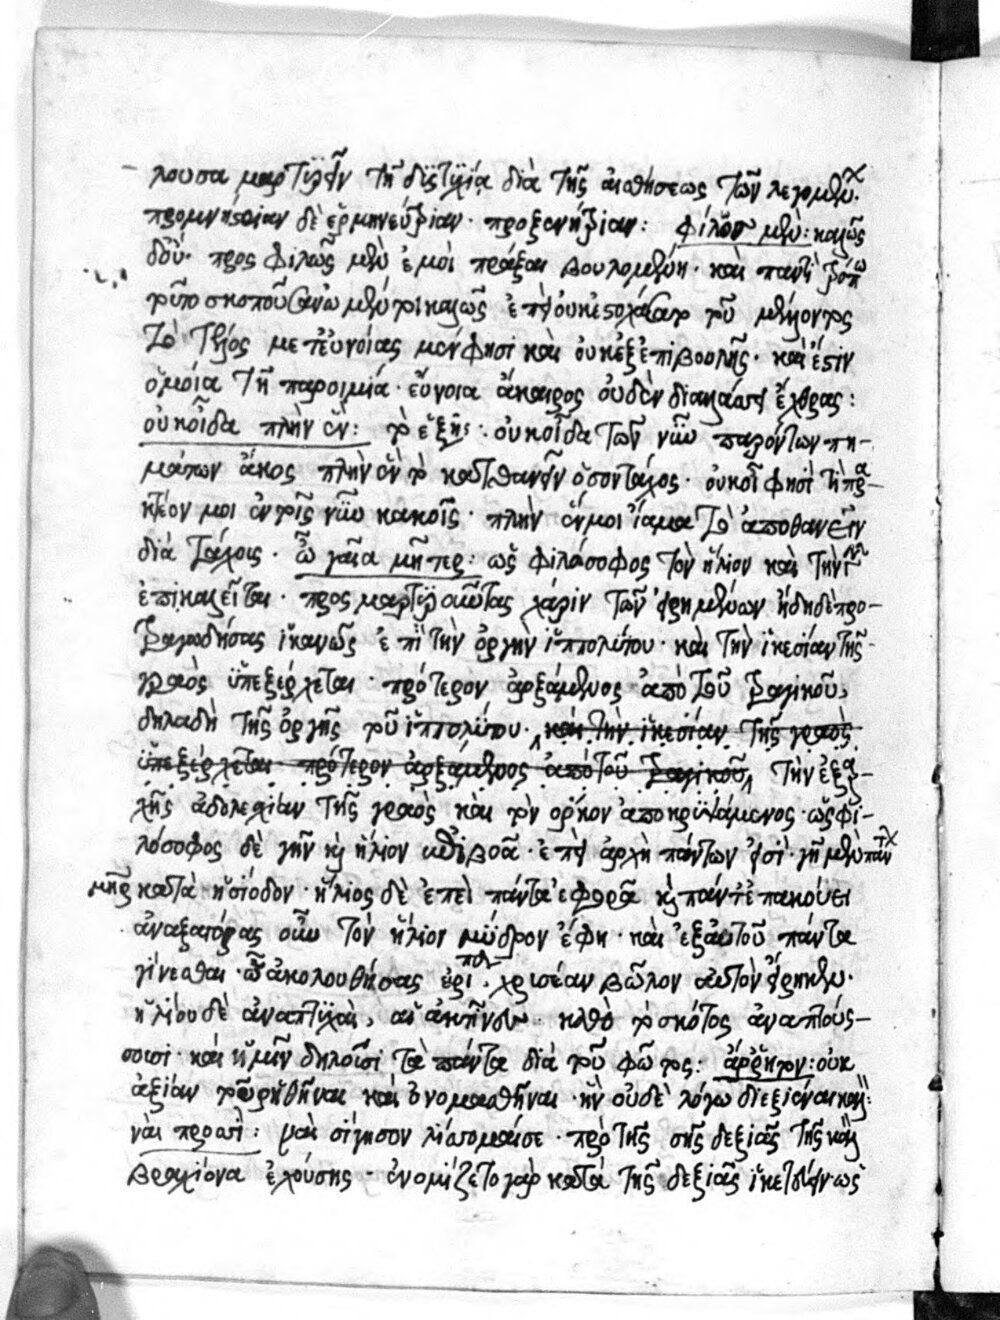 λουσα μαρτυρεῖν τῇ δυστυχίᾳ διὰ τῆς αἰσθήσεως τῶν λεγομένων.
προμνήστριαν δὲ ἑρμηνεύτριαν· προξενήτριαν: φίλως μὲν: καλῶς
δὲ οὔ· πρὸς φιλῶς μὲν ἐμοὶ πρᾶξαι βουλομένη· καὶ παντὶ τρόπω
τοῦτο σκοποῦσα καλῶς ἐπεὶ οὐκ ἐστοχάσατο τοῦ μέλλοντος
τὸ τέλος μετ' εὐνοίας μέν φησι καὶ οὐκ ἐξ ἐπιβουλῆς· καὶ ἔστιν
ὁμοία τῇ παροιμίᾳ· εὔνοια ἄκαιρος οὐδὲν διαλλάσσει ἔχθρας:
οὐκ οἶδα πλὴν ἕν: τὸ ἑξῆς· οὐκ οἶδα τῶν νῦν παρόντων πη-
μάτων ἄκος πλὴν ἓν τὸ κατθανεῖν ὅσον τάχος· οὐκ οἶδά φησι τί πρα-
κτέον μοι ἐν τοῖς νῦν κακοῖς· πλὴν ἕν μοι ἴαμα τὸ ἀποθανεῖν
διὰ τάχους· ὦ γαῖα μῆτερ: ὡς φιλόσοφος τὸν ἥλιον καὶ τὴν γῆν
ἐπικαλεῖται· πρὸς μαρτυροῦντας χάριν τῶν εἰρημένων ἤδη δὲ προ-
τραγωδήσας ἱκανῶς ἐπὶ τὴν ὀργὴν ἱππολύτου· καὶ τὴν ἱκεσίαν τῆς
γραὸς ὑπεξέρχεται· πρότερον ἀρξάμενος ἀπὸ τοῦ τραγικοῦ,
δηλαδὴ τῆς ὀργῆς τοῦ ἱππολύτου· καὶ τὴν ἱκεσίαν τῆς γραὸς
ὑπεξέρχεται πρότερον ἀρξάμενος ἀπὸ τοῦ τραγικοῦ τὴν ἐξ ἀρ-
χῆς ἀδολεσχίαν τῆς γραὸς καὶ τὸν ὅρκον ἀποκρυψάμενος· ὡς φι-
λόσοφος δὲ γῆν καὶ ἥλιον βοᾶ· ἐπεὶ ἀρχὴ πάντων εἰσί· γῆ μὲν πάντων
μήτηρ κατὰ ἡσίοδον· ἥλιος δὲ ἐπεὶ πάντα ἐφορᾶ καὶ πάντ' ἐπακούει
ἀναξαγόρας οὖν τὸν ἥλιον μύδρον ἔφη· καὶ ἐξ αὐτοῦ πάντα
γίνεσθαι· ᾧ ἀκολουθήσας εὐριπίδης χρυσέαν βῶλον αὐτὸν εἴρηκεν·
ἡλίου δὲ ἀναπτυχαὶ, αἱ ἀκτῖνες· καθὸ τὸ σκότος ἀναπτύσ-
σουσι· καὶ ἡμῖν δηλοῦσι τὰ πάντα διὰ τοῦ φωτός: ἄρρητον: οὐκ
ἀξίαν τοῦ ῥηθῆναι καὶ ὀνομασθῆναι· ἣν οὐδὲ λόγω διεξιέναι καλόν:
ναὶ πρός σε: μαὶ σίγησον· πρὸ τῆς σῆς δεξιᾶς τῆς καλὸν
βραχίονα ἐχούσης· ἐνομίζετο γὰρ κατὰ τῆς δεξιᾶς ἱκετεύειν· ὡς